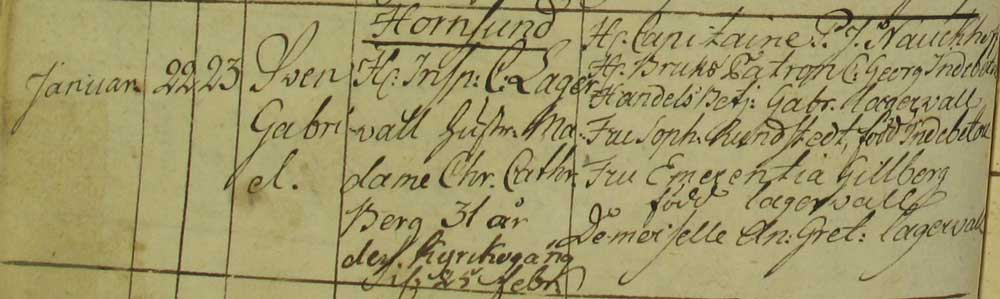 Hornsund
Januari 22 23 Sven
Gabri
el.
Hr. Insp: C: Lager
wall Hustr: Ma
dame Chr. Cathr.
Berg 31 år
des Kyrkogång
25 febr.
Hr. Capitaine P. J. Nauckhof
Hr. Bruks Patron C: Georg Indebetou
Handels Betj: Gabr. lagerwall
Fru Soph. Rundstedt, född Indebetou
Fru Emerentia Gillberg
född lagerwall
Demoiselle An: Gret: lagerwall